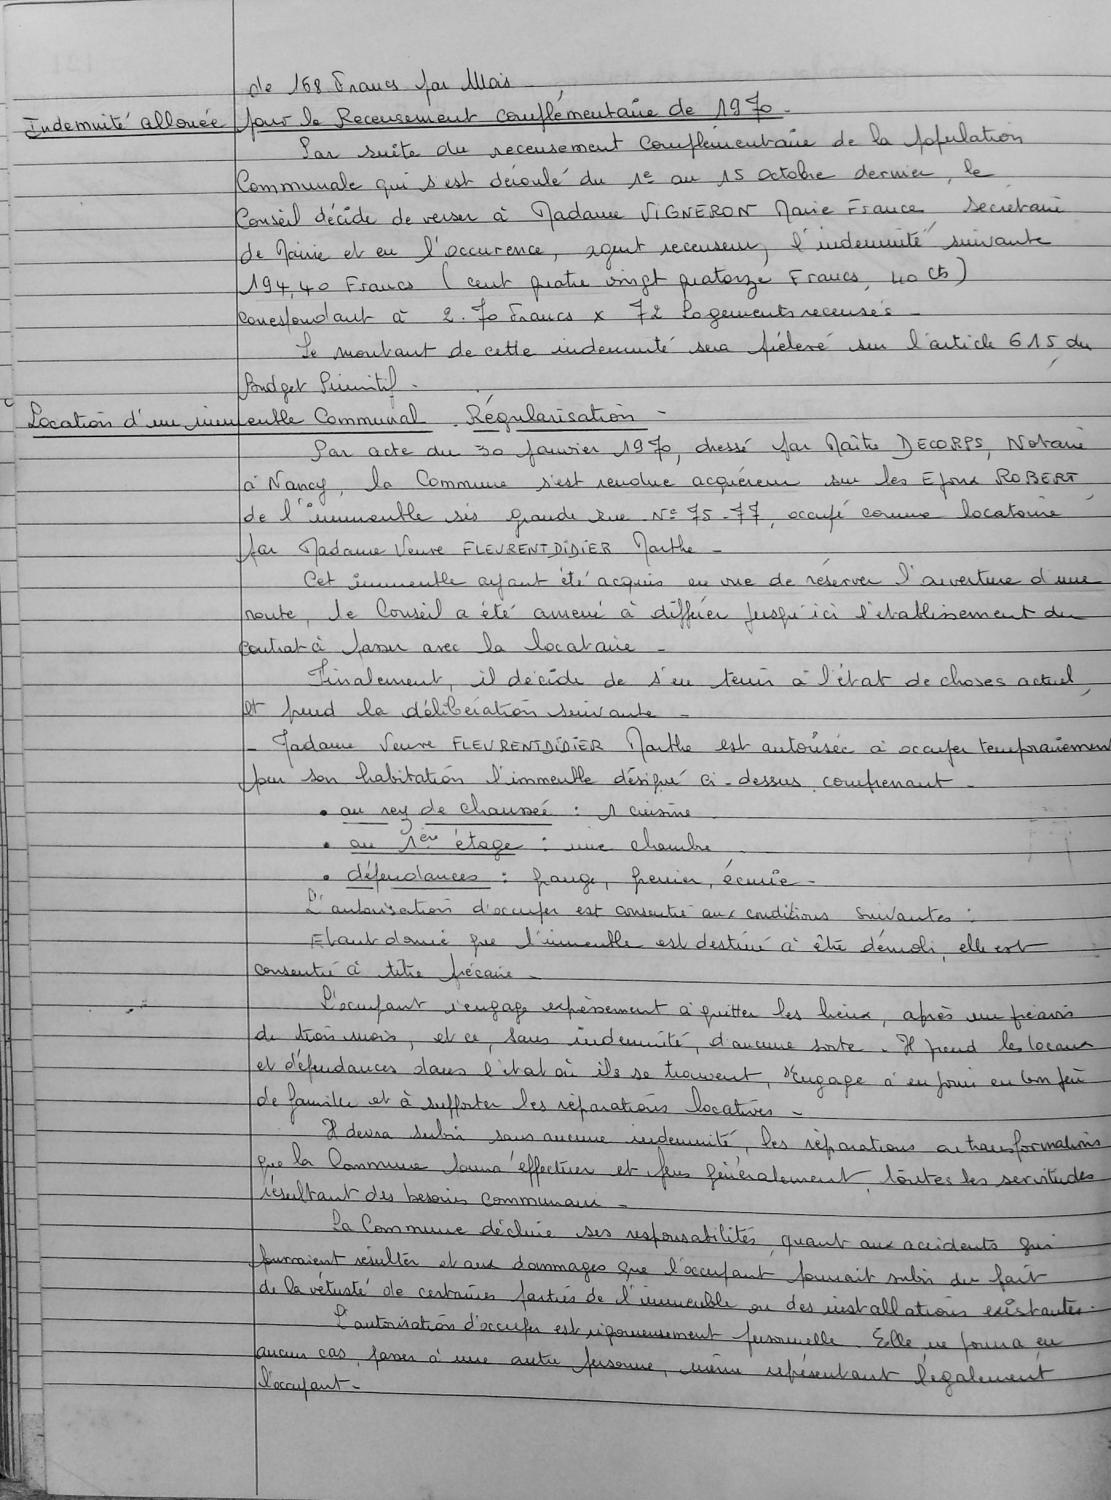 de 168 Francs par Mois
Indemnité allouée pour le Recensement complémentaire de 1970.
Par suite du recensement complémentaire de la population
Communale qui s'est déroulé du 1e au 15 octobre dernier, le
Conseil décide de verser à Madame VIGNERON Marie France, Secrétaire
de Mairie et en l'occurence, agent recenseur, l'indemnité suivante
194,40 Francs (cent quatre vingt quatorze Francs, 40 cts)
correspondant à 2.70 Francs x 72 logements recensés -
Le montant de cette indemnité sera prélevé sur l'article 615 du
Budget Primitif -
Location d'un immeuble Communal. Régularisation -
Par acte du 30 janvier 1970, dressé par Maître DECORPS, Notaire
à Nancy, la Commune s'est rendue acquéreur sur les Epoux ROBERT,
de l'immeuble sis grande rue N° 75-77, occupé comme locataire
par Madame Veuve FLEURENTDIDIER Marthe -
Cet immeuble ayant été acquis en vue de réserver l'ouverture d'une
route, le Conseil a été amené à différer jusqu'ici l'établissement du
contrat à passer avec la locataire -
Finalement, il décide de s'en tenir à l'état de choses actuel,
et prend la délibération suivante -
- Madame Veuve FLEURENTDIDIER Marthe est autorisée à occuper temporairement
pour son habitation l'immeuble désigné ci-dessus, comprenant -
• au rez de chaussée : 1 cuisine
• au 1ère étage : une chambre
• dépendances : grange, grenier, écurie -
L'autorisation d'occuper est consentie aux conditions suivantes :
Etant donné que l'immeuble est destiné à être démoli, elle est
consentie à titre précaire -
L'occupant s'engage expressement à quitter les lieux, après un préavis
de trois mois, et ce, sans indemnité, d'aucune sorte. Il prend les locaux
et dépendances dans l'état où ils se trouvent, s'engage à en jouir en bon père
de famille et à supporter les réparations locatives -
Il devra subir sans aucune indemnité, les réparations ou transformations
que la Commune pourra effectuer et plus généralement, toutes les servitudes
résultant des besoins communaux -
La Commune décline ses responsabilités, quant aux accidents qui
pourraient résulter et aux dommages que l'occupant pourrait subir du fait
de la vétusté de certaines parties de l'immeuble ou des installations existantes.
L'autorisation d'occuper est rigoureusement personnelle. Elle ne pourra en
aucun cas, passer à une autre personne, même représentant légalement
l'occupant -